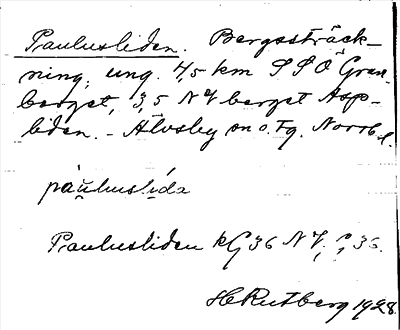 Paulusliden. Bergssträck-
ning, ung. 4,5 km SSÖ Gran-
berget, 3,5 NV berget Asp-
liden. - Älvsby sn o. Tg. Norrb. l.
pàu̯luslị́da
Paulusliden kG 36 NV, G 36.
H Rutberg 1928.